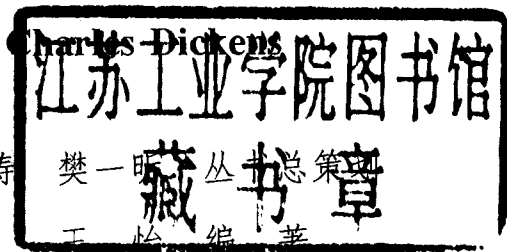 Charles Dickens
江苏工业学院图书馆
寿 樊一昕 丛书总策划
藏书章
王 怡 编著